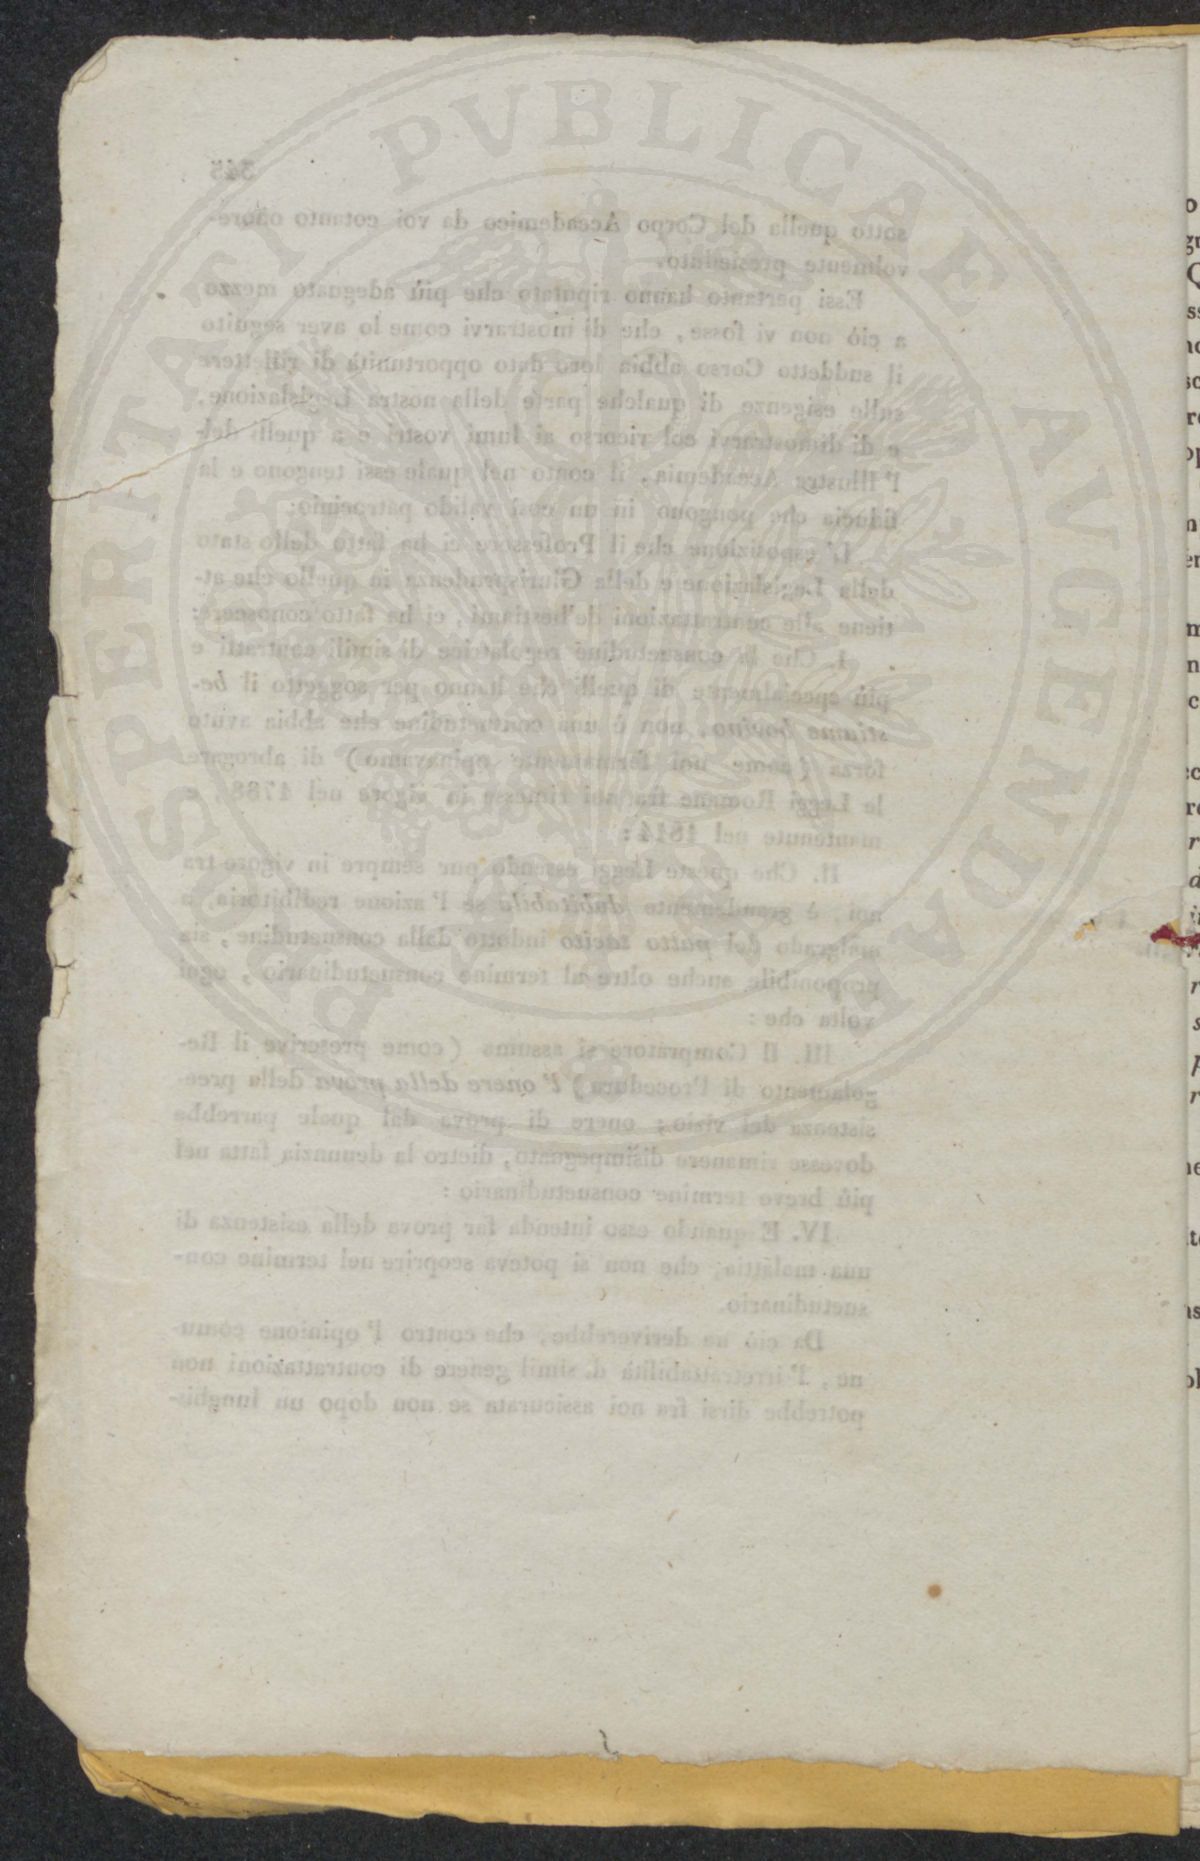 345
sotto quella del Corpo Accademico da voi cotanto onore-
volmente presieduto.
Essi pertanto hanno riputato che più adeguato mezzo
a ciò non vi fosse, che di mostrarvi come lo aver seguito
il suddetto Corso abbia loro dato opportunità di riflettere
sulle esigenze di qualche parte della nostra Legislazione,
e di dimostrarvi col ricorso ai lumi vostri e a quelli del-
l'Illustre Accademia, il conto nel quale essi tengono e la
fiducia che pongono in un così valido patrocinio.
L'esposizione che il Professore ci ha fatto dello stato
della Legislazione e della Giurisprudenza in quello che at-
tiene alle contrattazioni de'bestiami, ci ha fatto conoscere:
I. Che la consuetudine regolatrice di simili contratti e
più specialmente di quelli che hanno per soggetto il be-
stiame bovino, non è una consuetudine che abbia avuto
forza (come noi fermamente opinavamo) di abrogare
le Leggi Romane fra noi rimesse in vigore nel 1788, e
mantenute nel 1814:
II. Che queste Leggi essendo pur sempre in vigore tra
noi, è grandemente dubitabile se l'azione redibitoria, a
malgrado del patto tacito indotto dalla consuetudine, sia
proponibile anche oltre al termine consuetudinario, ogni
volta che:
III. Il Compratore si assuma (come prescrive il Re-
golamento di Procedura) l'onere della prova della pree-
sistenza del vizio; onere di prova dal quale parrebbe
dovesse rimanere disimpegnato, dietro la denunzia fatta nel
più breve termine consuetudinario:
IV. E quando esso intenda far prova della esistenza di
una malattia, che non si poteva scoprire nel termine con-
suetudinario.
Da ciò ne deriverebbe, che contro l'opinione comu-
ne, l'irretrattabilità di simil genere di contrattazioni non
potrebbe dirsi fra noi assicurata se non dopo un lunghis-
PROSPERITATI PVBLICAE AVGENDAE